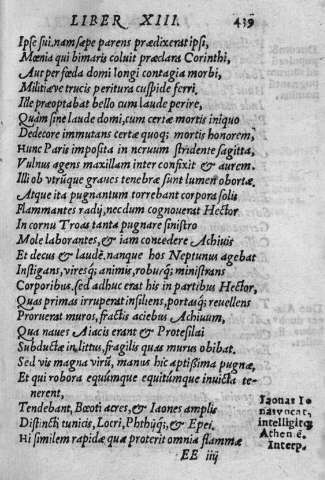 LIBER XIII. 439
Ipse sui, nam sæpe parens prædixerat ipsi,
Mœnia qui bimaris coluit præclara Corinthi,
Aut per fœda domi longi contagia morbi,
Militiæve trucis peritura cuspide ferri.
Ille præoptabat bello cum laude perire,
Quàm sine laude domi, cum certæ mortis iniquo
Dedecore immutans certæ quoq; mortis honorem,
Hunc Paris imposita in neruum stridente sagitta,
Vulnus agens maxillam inter confixit & aurem.
Illi ob utrũque graues tenebræ sunt lumen obortæ.
Atque ita pugnantum torrebant corpora solis
Flammantes radij, necdum cognouerat Hector
In cornu Troas tanta pugnare sinistro
Mole laborantes, & iam concedere Achiuis
Et decus & laudẽ, nanque hos Neptunus agebat
Instigans, viresq; animis, roburq; ministrans
Corporibus, sed adhuc erat his in partibus Hector,
Quas primas irruperat insiliens, portasq; reuellens
Proruerat muros, fractis aciebus Achiuum,
Qua naues Aiacis erant & Protesilai
Subductæ in littus, fragilis quas murus obibat.
Sed vis magna virũ, manus hic aptissima pugnæ,
Et qui robora equũmque equitũmque inuicta te-
nerent,
Tendebant, Bœoti acres, & Iaones amplis
Distincti tunicis, Locri, Phthijq;, & Epei.
Hi similem rapidæ quæ proterit omnia flammæ
EE iiij
Iaonas Io-
nas vocat,
intelligitq;
Athen ẽ.
Interp.